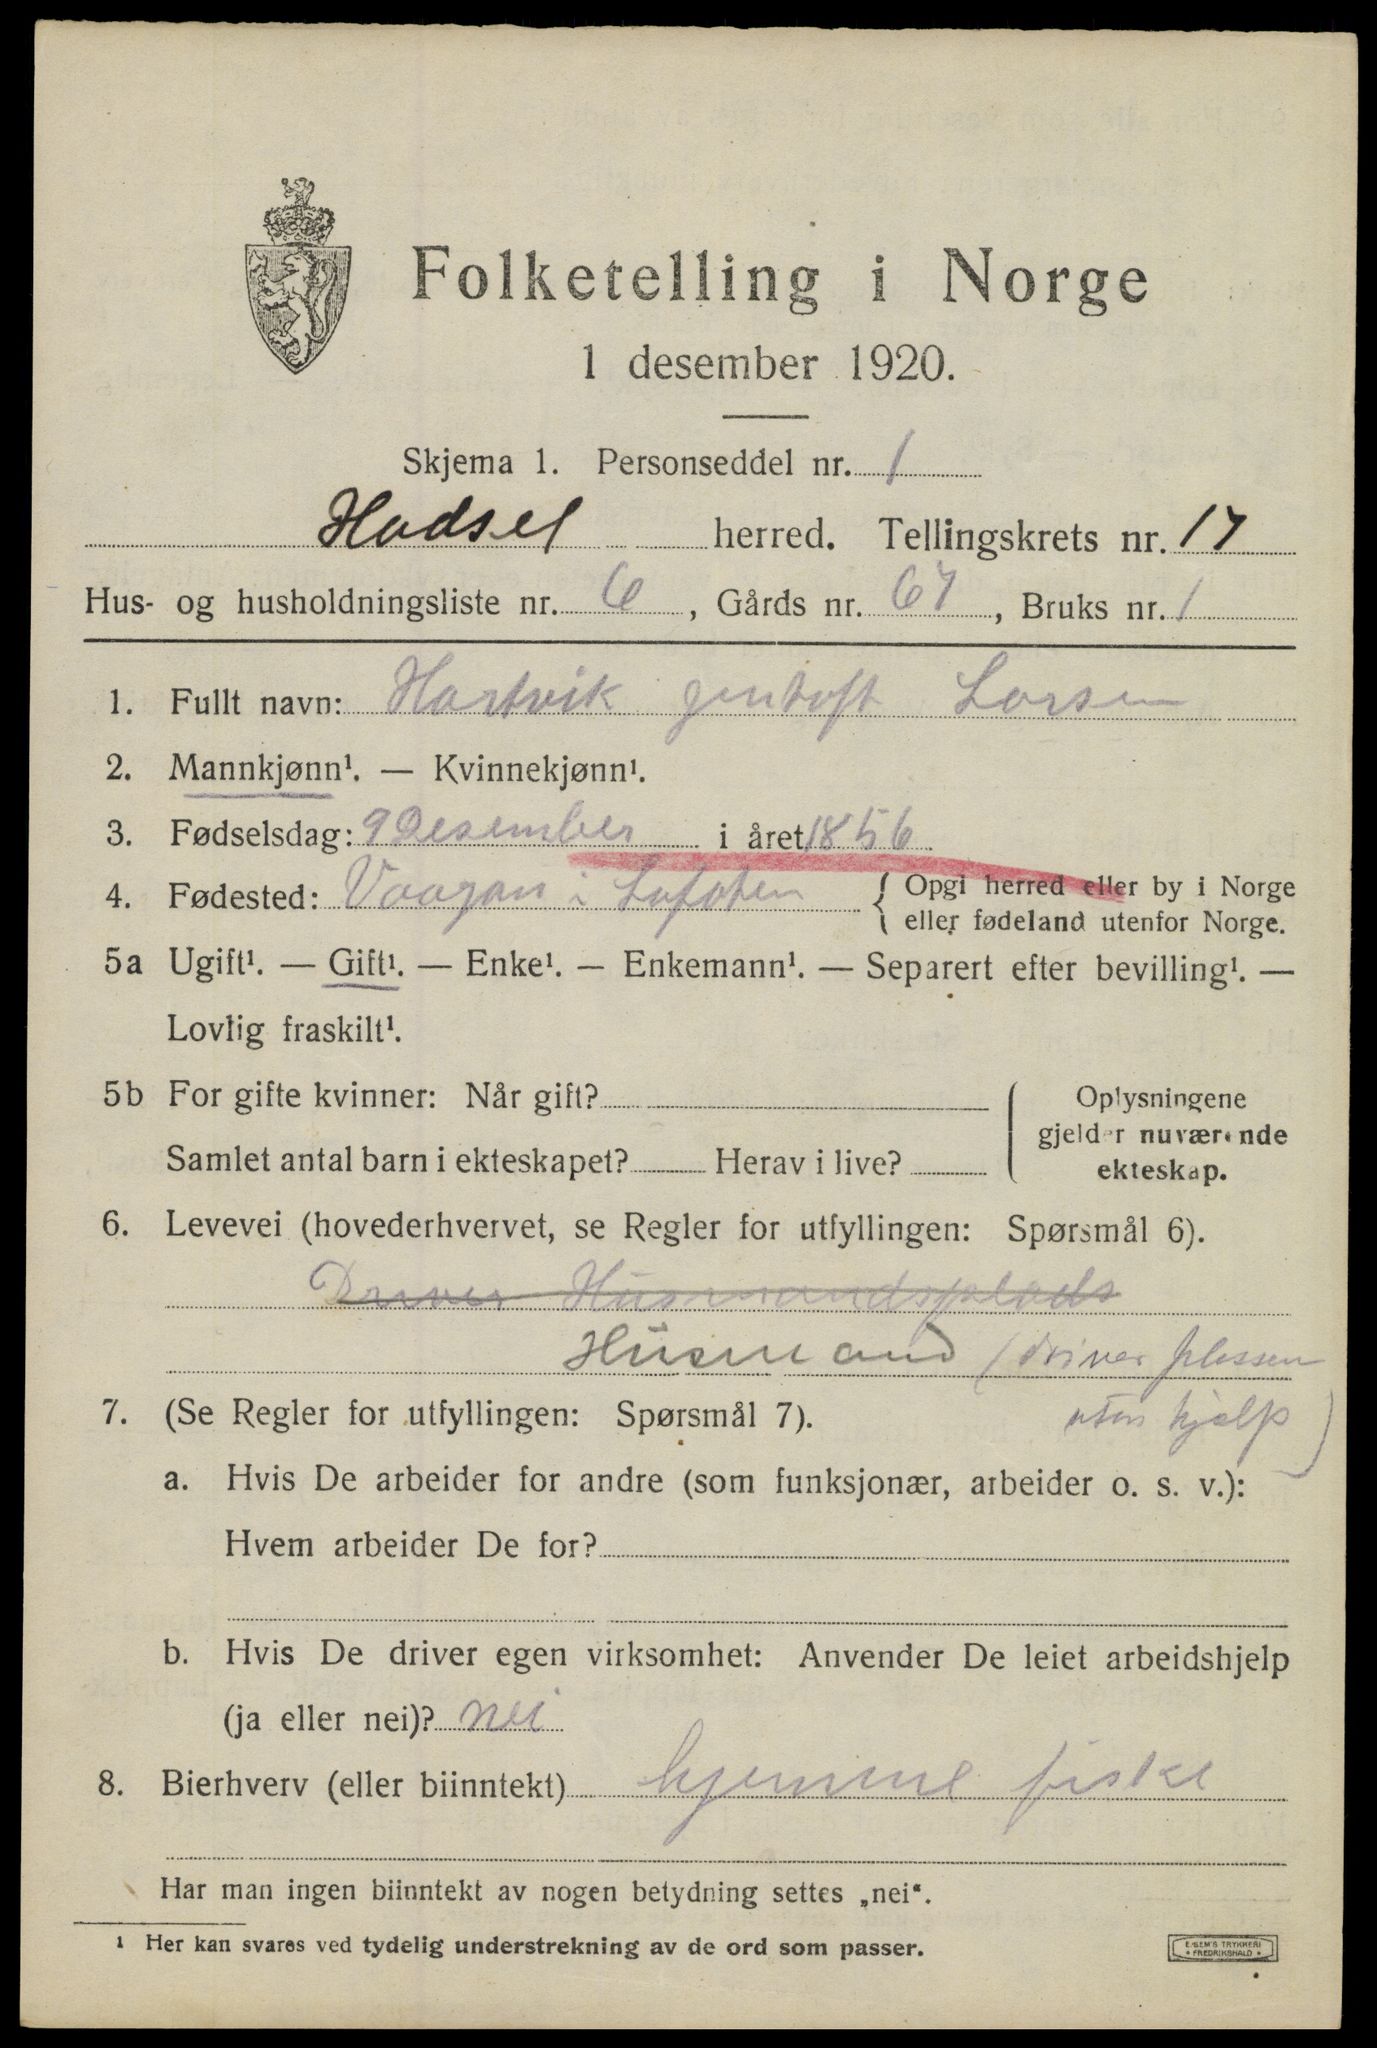 Folketelling i Norge
1 desember 1920.
Skjema 1. Personseddel nr. 1
Hadsel herred. Tellingskrets nr. 17
Hus- og husholdningsliste nr. 6, Gårds nr. 67, Bruks nr. 1
1. Fullt navn: Hartvik Jentoft Larsen
2. Mannkjønn¹. — Kvinnekjønn¹.
3. Fødselsdag: 9 Desember i året 1856
4. Fødested: Vaagan i Lofoten { Opgi herred eller by i Norge
eller fødeland utenfor Norge.
5a Ugift¹. — Gift¹. — Enke¹. — Enkemann¹. — Separert efter bevilling¹. —
Lovlig fraskilt¹.
5b For gifte kvinner: Når gift?
Samlet antal barn i ekteskapet? Herav i live?
Oplysningene
gjelder nuværende
ekteskap.
6. Levevei (hovederhvervet, se Regler for utfyllingen: Spørsmål 6).
Driver Husmandsplads
Husmand (driver plassen
uten hjælp)
7. (Se Regler for utfyllingen: Spørsmål 7).
a. Hvis De arbeider for andre (som funksjonær, arbeider o. s. v.):
Hvem arbeider De for?
b. Hvis De driver egen virksomhet: Anvender De leiet arbeidshjelp
(ja eller nei)? nei
8. Bierhverv (eller biinntekt) hjemme fiske
Har man ingen biinntekt av nogen betydning settes „nei“.
¹ Her kan svares ved tydelig understrekning av de ord som passer.
E. SEM'S TRYKKERI
• FREDRIKSHALD •